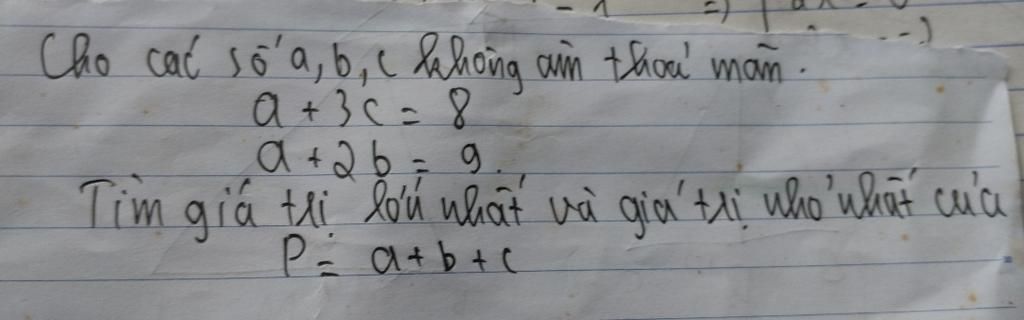 Cho các số a, b, c không âm thoả mãn.
a + 3c = 8
a + 2b = 9.
Tìm giá trị lớn nhất và giá trị nhỏ nhất của
P = a + b + c